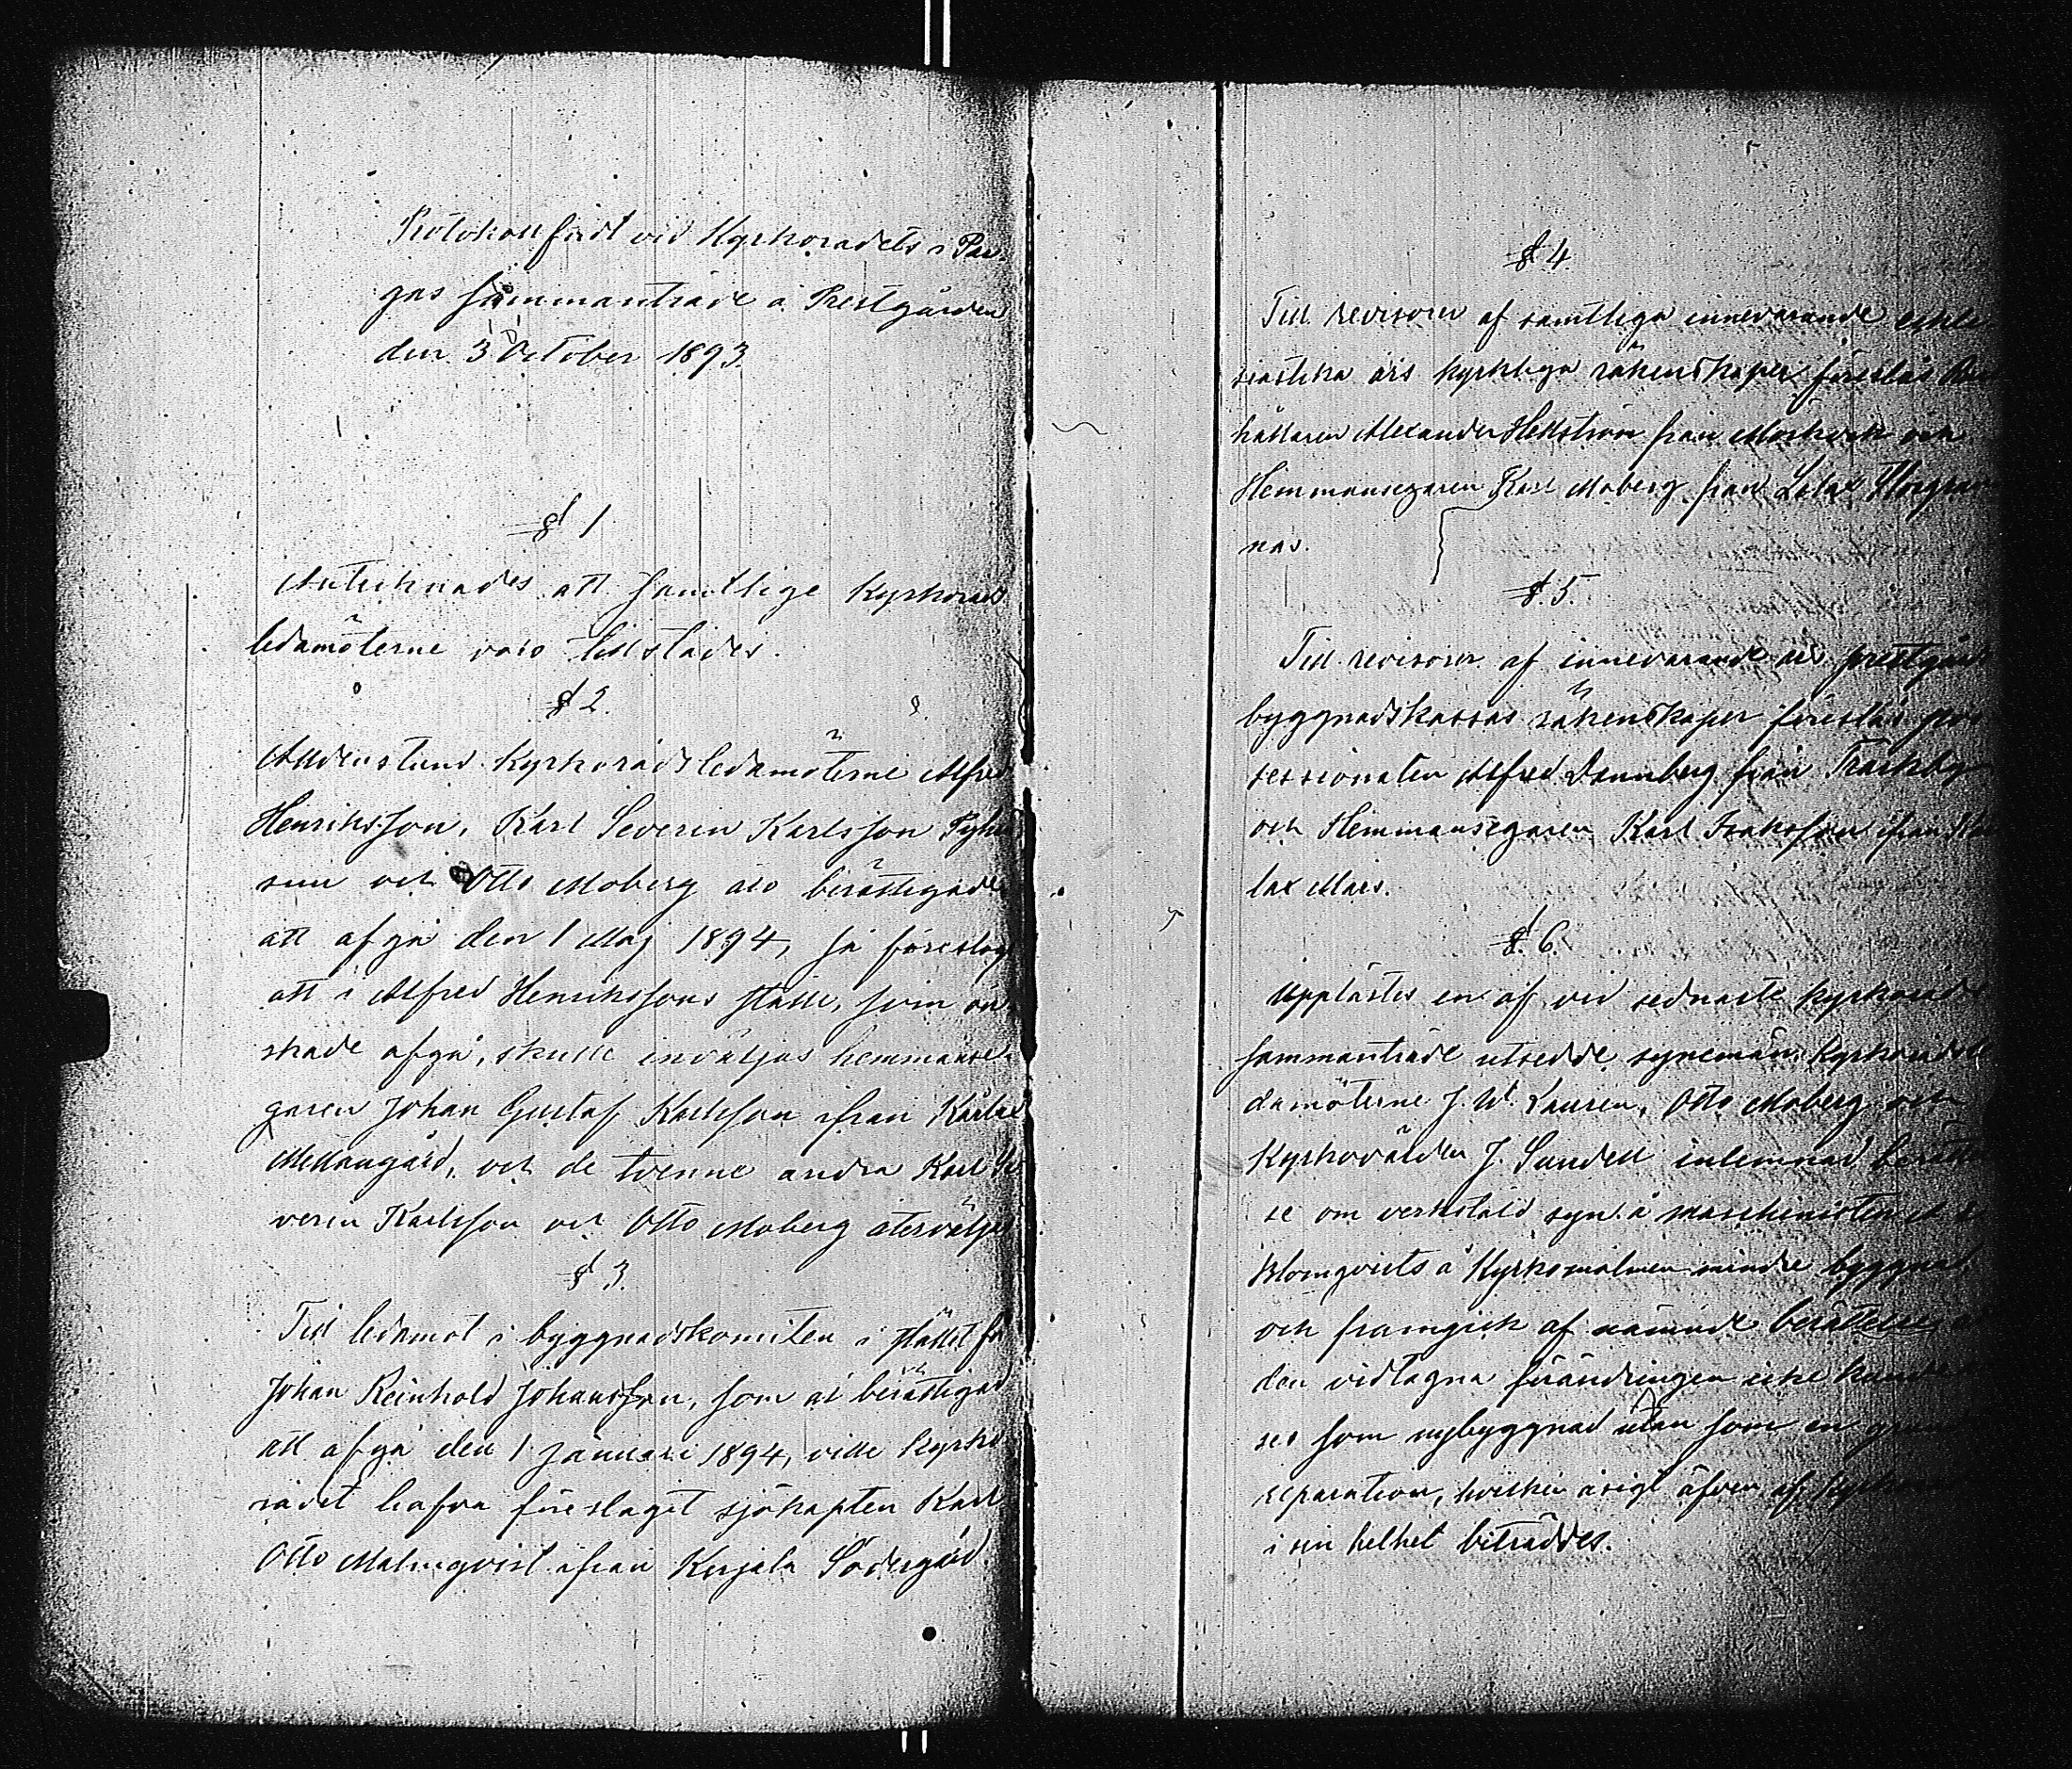 Protokoll fördt vid Kyrkorådets i Par-
gas sammanträde å Prestgården
den 3 October 1893.
§ 1
Antecknades att samtlige Kyrkoråds
ledamöterne voro tillstädes.
§ 2.
Alldenstund Kyrkorådsledamöterne Alfred
Henriksson, Karl Severin Karlsson
och Otto Moberg äro berättigade
att afgå den 1 Maj 1894, så föreslogs
att i Alfred Henrikssons ställe, som ön-
skade afgå, skulle inväljas hemmanse-
garen Johan Gustaf Karlsson ifrån
Mellangård, och de tvenne andra Karl Se
verin Karlsson och Otto Moberg återväljas
§ 3.
Till ledamot i byggnadskomiten i stället för
Johan Reinhold Johansson, som är berättigad
att afgå den 1 Januari 1894, ville Kyrko
rådet hafva föreslaget sjökapten Karl
Otto Malmqvist ifrån Kirjala Södergård.
§ 4.
Till revisorer af samtliga innevarande eckle
siastika års kyrkliga räkenskaper föreslås
hållaren Alexander Hellström från och
Hemmansegaren Karl Moberg från
näs.
§ 5.
Till revisorer af innevarande års prestgårds
byggnadskassas räkenskaper föreslås pos
sessionaten Alfred Dannberg från Tråckby
och Hemmansegaren Karl Isaksson ifrån
lax Mårs.
§ 6.
Upplästes en af vid sednaste kyrkoråds
sammanträde utsedde synemän Kyrkorådsle
damöterne J. W. Lauren, Otto Moberg och
Kyrkovärden J. Sundell inlemnad berättel
se om verkstäld syn å maschinisten
Blomqvists å Kyrkomalmen mindre byggnad
och framgick af nämnde berättelse att
den vidtagna förändringen icke kunde
ses som nybyggnad utan som en
reparation, hvilken åsigt äfven af Kyrkorådet
i sin helhet biträddes.